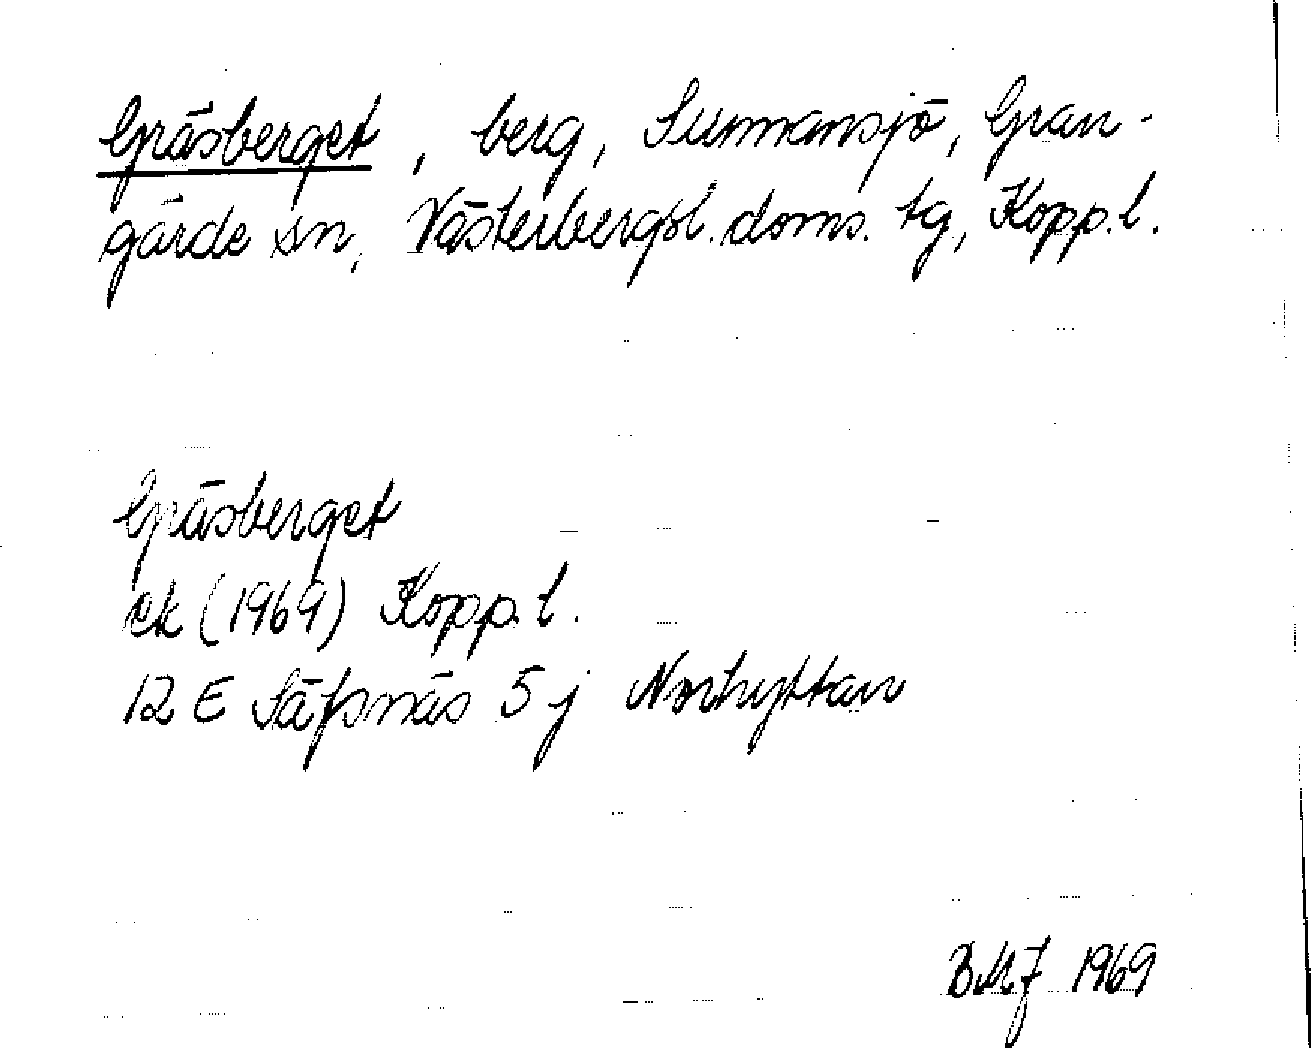 Gräsberget, berg, Sunnansjö, Gran-
gärde sn, Västerbergsl. doms. tg, Kopp. l.
Gräsberget
ek (1969) Kopp. l.
12 E Säfsnäs 5 j Norhyttan
BMJ 1969